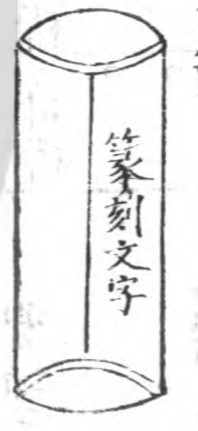 篆刻文字